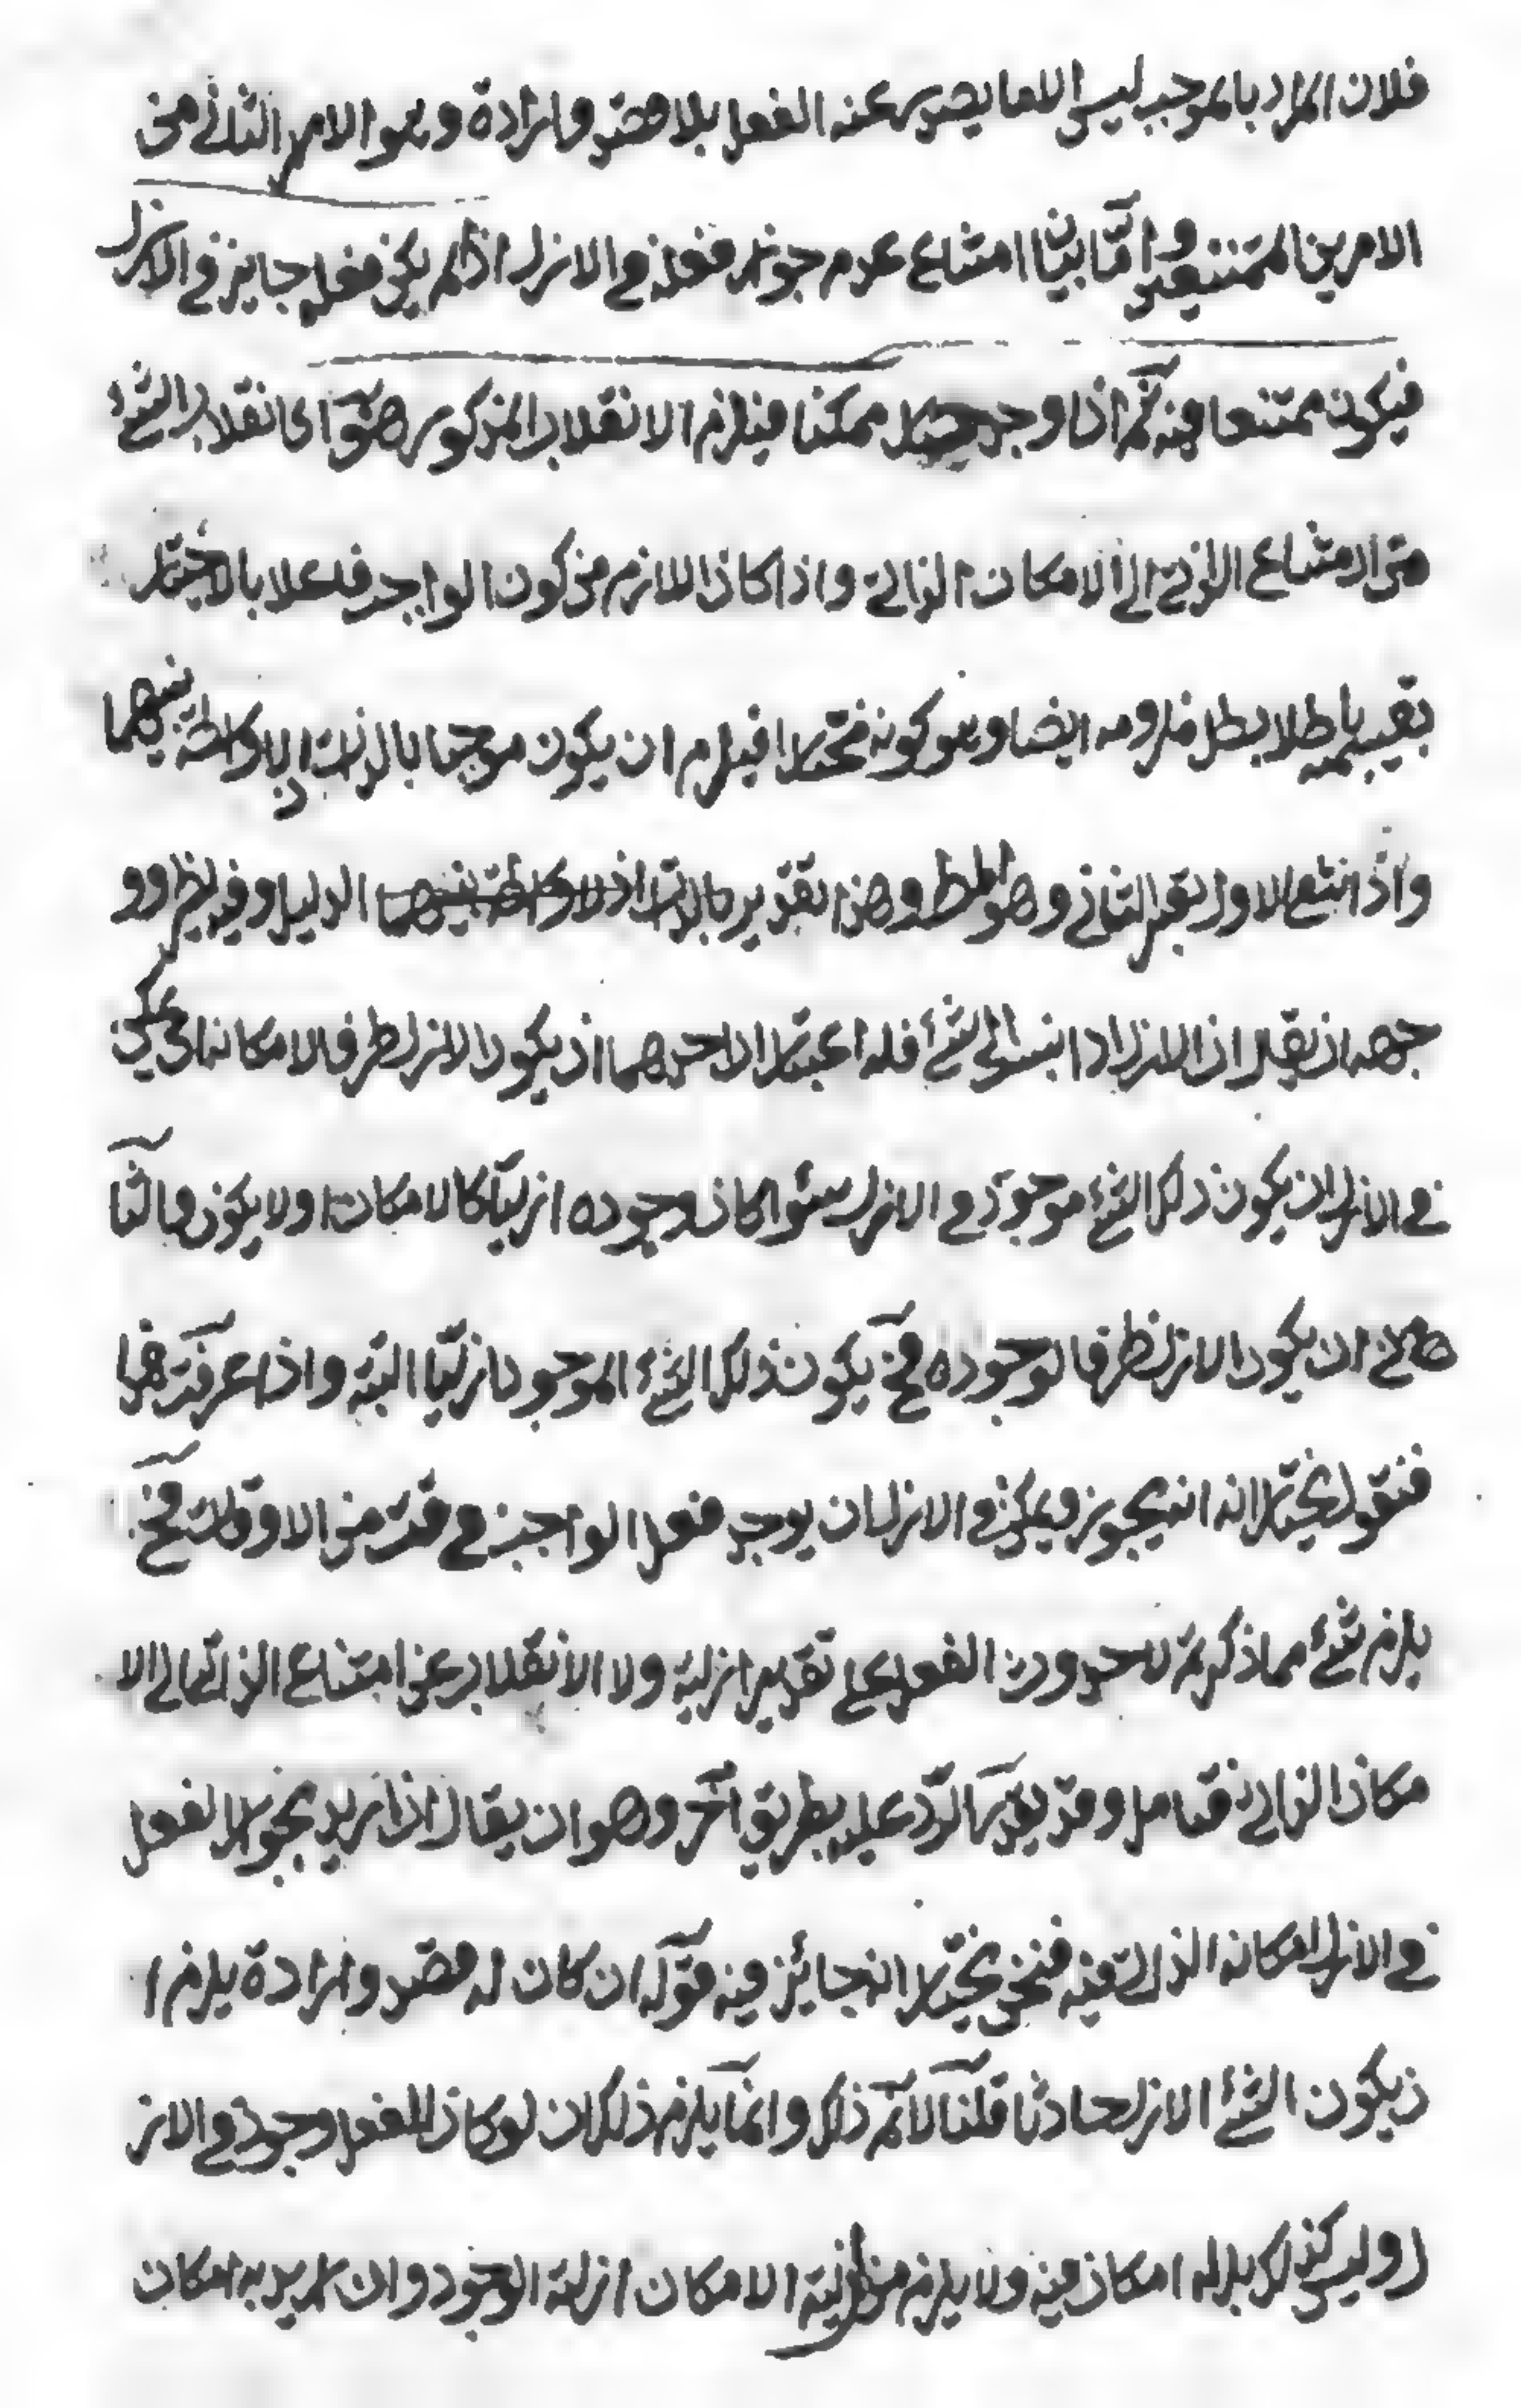 فلان المراد بالموجب ليس الا ما يصدر عنه الفعل بلا قصد وارادة وهو الامر الثاني من
الامرين الممتنعين واما بيان امتناع عدم جواز فعله في الازل اذا لم يكن فعله جايز في الازل
فيكون ممتنعا فيه ثم اذا وجد ممكنا فيلزم الانقلاب المذكور ضرو اى انقلاب الشئ
من الامتناع الذاتي الى الامكان الذاتي واذا كان اللازم من كون الواجد فاعلا بالاختيار
بقسميه باطلا بطل ملزومه ايضا وهو كونه مختارا فيلزم ان يكون موجبا بالذات اذ لا واسطة بينهما
واذا انتفع الاول بقى الثاني وهو المط وهذا تقدير الدليل وفيه نظر وو
جهه ان يقال ان الازل اذا نسب الى شئ فله اعتباران احدهما ان يكون الازل ظرفا لامكانه اى يمكن
في الازل ان يكون ذلك الشئ موجودا في الازل سواء كان وجوده ازليا كالامكان او لا يكون والثا
ني ان يكون الازل ظرفا لوجوده فح يكون ذلك الشئ الموجود ازليا البتة واذا عرفت هذا
فنقول نختار انه انه يجوز ويمكن في الازل ان يوجد فعل الواجب في وقت من الاوقات فح
يلزم شئ مما ذكرتم لا حدوث الفعل على تقدير ازلية ولا الانقلاب عن امتناع الذاتي الى الا
مكان الذاتي فتأمل وقد يقرر الرد عليه بطريق آخر وهو ان يقال ان اريد بجواز الفعل
في الازل امكانه الذاتي فيه فنحن نختار انه جائز فيه قوله ان كان له قصد وارادة يلزم ا
ن يكون الشئ الازل حادثا قلنا لا نم ذلك وانما يلزم ذلك ان لو كان للفعل وجود في الاز
ل وليس كذلك بل له امكان فيه ولا يلزم من ازلية الامكان ازلية الوجود وان اريد به امكان